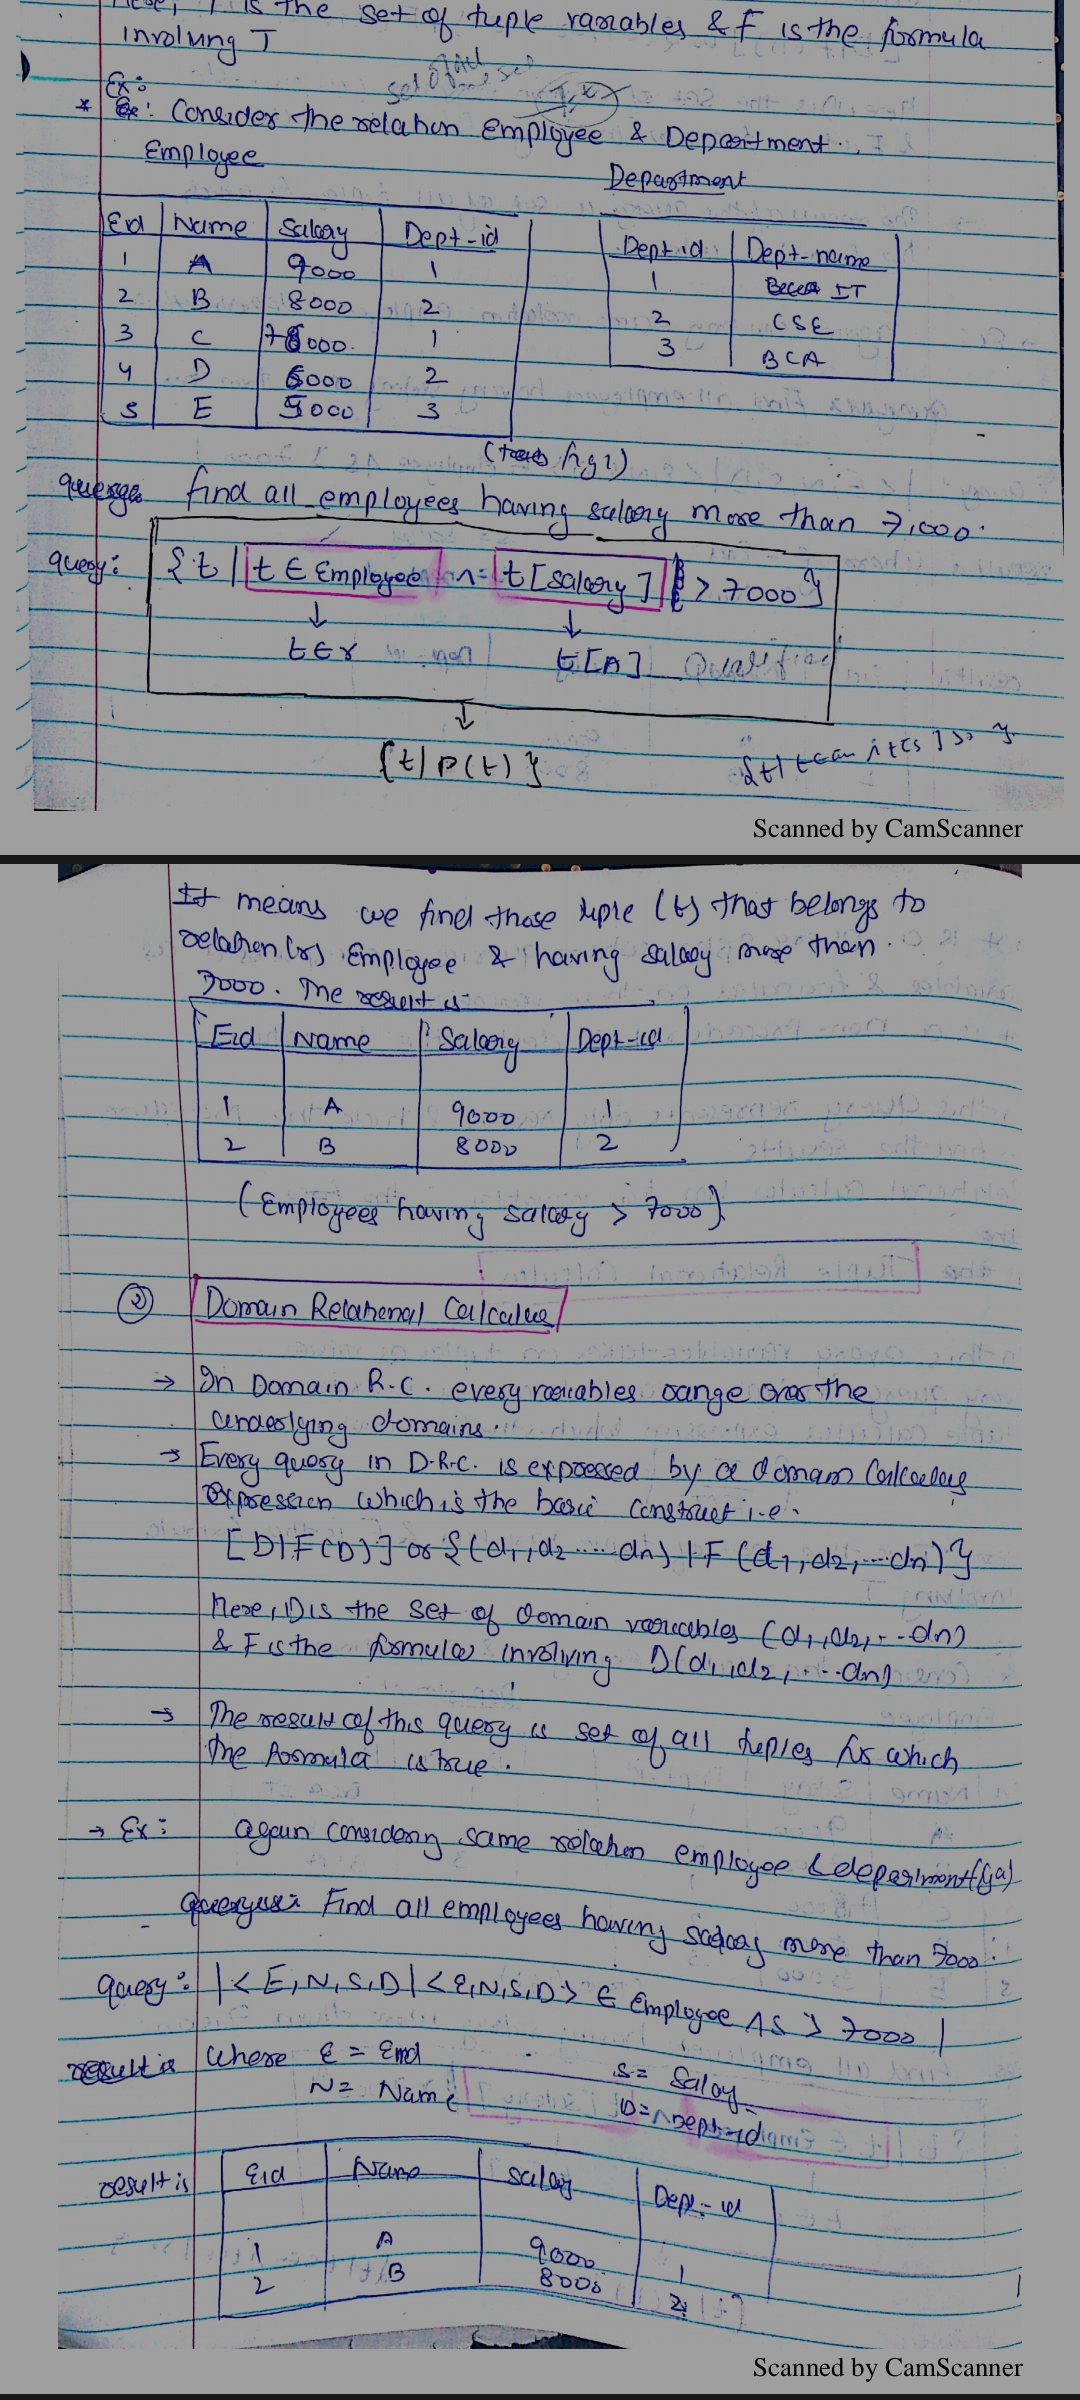 Here, T is the set of tuple variables & F is the formula
involving T
Ex:
* Ex: Consider the relation employee & Department.
Employee
Department
Eid Name Salary Dept-id
1 A 9000 1
2 B 8000 2
3 C 000. 1
4 D 6000 2
5 E 5000 3
Dept id Dept-name
1 IT
2 CSE
3 BCA
find all employees having salary more than 7,000.
query: {t | t ∈ Employee ∧ t[salary] > 7000}
t∈r t[A]
{t/P(t)}
Scanned by CamScanner
It means we find those tuple (t) that belongs to
relation(r) Employee & having salary more than
7000. The result is
Eid Name Salary Dept-id
1 A 9000 1
2 B 8000 2
(Employees having salary > 7000)
② Domain Relational Calculus
→ In Domain R.C. every variables range over the
underlying domains.
→ Every query in D.R.C. is expressed by a domain Calculus
expression which is the basic construct i.e.
[D|F(D)] or {(d1,d2.....dn) | F (d1,d2,...dn)}
here, D is the set of domain variables (d1,d2,--dn)
& F is the formula involving D(d1,d2,...dn)
→ The result of this query is set of all tuples for which
the formula is true.
→ Ex: again considering same relation employee & department
Find all employees having salary more than 7000.
query: |<E,N,S,D|<E,N,S,D> ∈ Employee ∧S > 7000|
where E = Eid
N = Name
S = Salay
D = Dept-id
result is
Eid Name salary Dept-id
1 A 9000 1
2 B 8000 2
Scanned by CamScanner